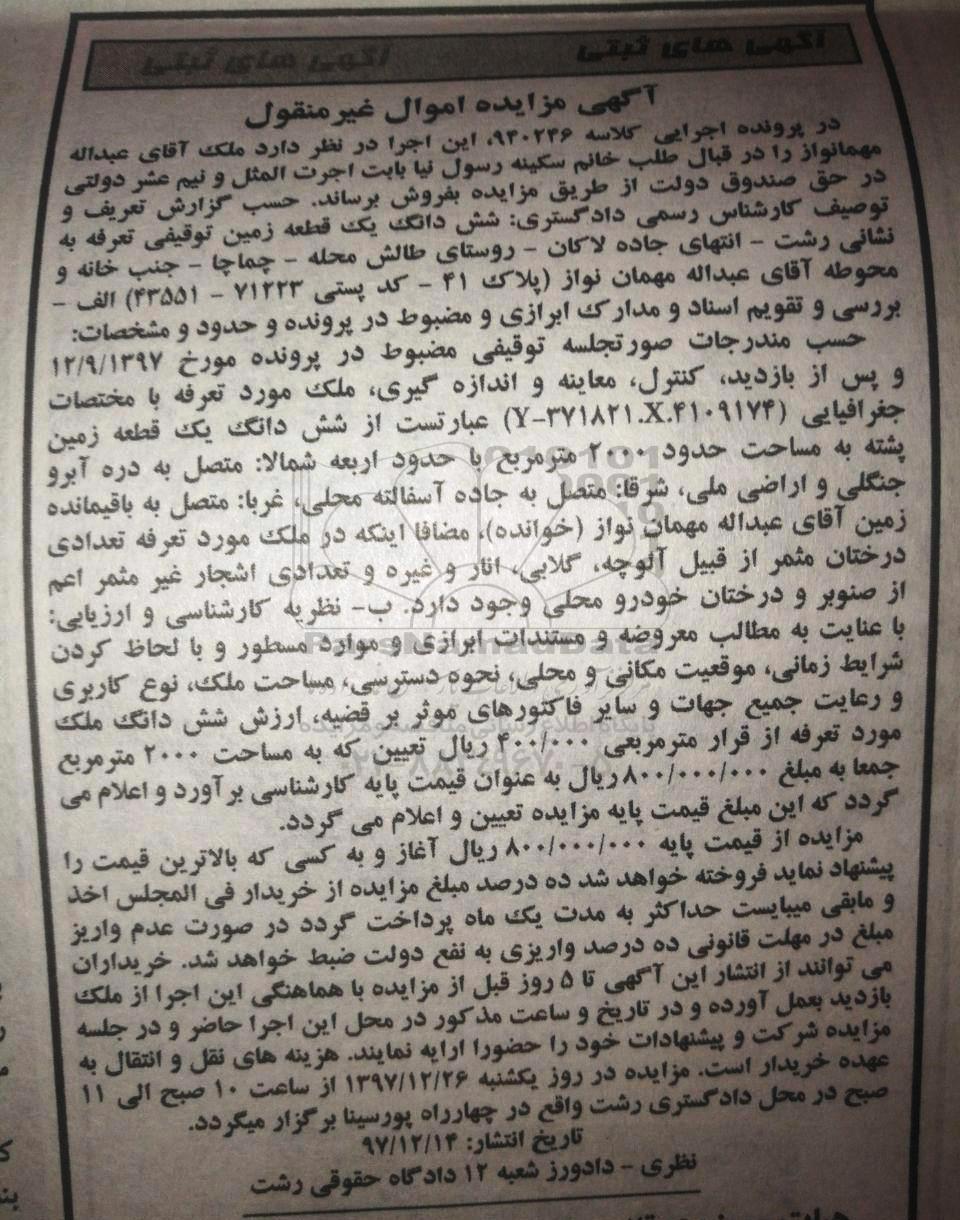 آگهی های ثبتی
آگهی مزایده اموال غیرمنقول
در پرونده اجرایی کلاسه ۹۴۰۲۴۶، این اجرا در نظر دارد ملک آقای عبداله
مهمانواز را در قبال طلب خانم سکینه رسول نیا بابت اجرت المثل و نیم عشر دولتی
در حق صندوق دولت از طریق مزایده بفروش برساند. حسب گزارش تعریف و
توصیف کارشناس رسمی دادگستری: شش دانگ یک قطعه زمین توقیفی تعرفه به
نشانی رشت - انتهای جاده لاکان - روستای طالش محله - چماچا - جنب خانه و
محوطه آقای عبداله مهمان نواز (پلاک ۴۱ - کد پستی ۷۱۲۲۳ - ۴۳۵۵۱) الف -
بررسی و تقویم اسناد و مدارک ابرازی و مضبوط در پرونده و حدود و مشخصات:
حسب مندرجات صورتجلسه توقیفی مضبوط در پرونده مورخ ۱۲/۹/۱۳۹۷
و پس از بازدید، کنترل، معاینه و اندازه گیری، ملک مورد تعرفه با مختصات
جغرافیایی (Y-۳۷۱۸۲۱.X.۴۱۰۹۱۷۴) عبارتست از شش دانگ یک قطعه زمین
پشته به مساحت حدود ۲۰۰۰ مترمربع با حدود اربعه شمالا: متصل به دره آبرو
جنگلی و اراضی ملی، شرقا: متصل به جاده آسفالته محلی، غربا: متصل به باقیمانده
زمین آقای عبداله مهمان نواز (خوانده)، مضافا اینکه در ملک مورد تعرفه تعدادی
درختان مثمر از قبیل آلوچه، گلابی، انار و غیره و تعدادی اشجار غیر مثمر اعم
از صنوبر و درختان خودرو محلی وجود دارد. ب- نظریه کارشناسی و ارزیابی:
با عنایت به مطالب معروضه و مستندات ابرازی و موارد مسطور و با لحاظ کردن
شرایط زمانی، موقعیت مکانی و محلی، نحوه دسترسی، مساحت ملک، نوع کاربری
و رعایت جمیع جهات و سایر فاکتورهای موثر بر قضیه، ارزش شش دانگ ملک
مورد تعرفه از قرار مترمربعی ۴۰۰/۰۰۰ ریال تعیین که به مساحت ۲۰۰۰ مترمربع
جمعا به مبلغ ۸۰۰/۰۰۰/۰۰۰ ریال به عنوان قیمت پایه کارشناسی برآورد و اعلام می
گردد که این مبلغ قیمت پایه مزایده تعیین و اعلام می گردد.
مزایده از قیمت پایه ۸۰۰/۰۰۰/۰۰۰ ریال آغاز و به کسی که بالاترین قیمت را
پیشنهاد نماید فروخته خواهد شد ده درصد مبلغ مزایده از خریدار فی المجلس اخذ
و مابقی میبایست حداکثر به مدت یک ماه پرداخت گردد در صورت عدم واریز
مبلغ در مهلت قانونی ده درصد واریزی به نفع دولت ضبط خواهد شد. خریداران
می توانند از انتشار این آگهی تا ۵ روز قبل از مزایده با هماهنگی این اجرا از ملک
بازدید بعمل آورده و در تاریخ و ساعت مذکور در محل این اجرا حاضر و در جلسه
مزایده شرکت و پیشنهادات خود را حضورا ارایه نمایند. هزینه های نقل و انتقال به
عهده خریدار است. مزایده در روز یکشنبه ۱۳۹۷/۱۲/۲۶ از ساعت ۱۰ صبح الی ۱۱
صبح در محل دادگستری رشت واقع در چهارراه پورسینا برگزار میگردد.
تاریخ انتشار: ۹۷/۱۲/۱۴
نظری - دادورز شعبه ۱۲ دادگاه حقوقی رشت